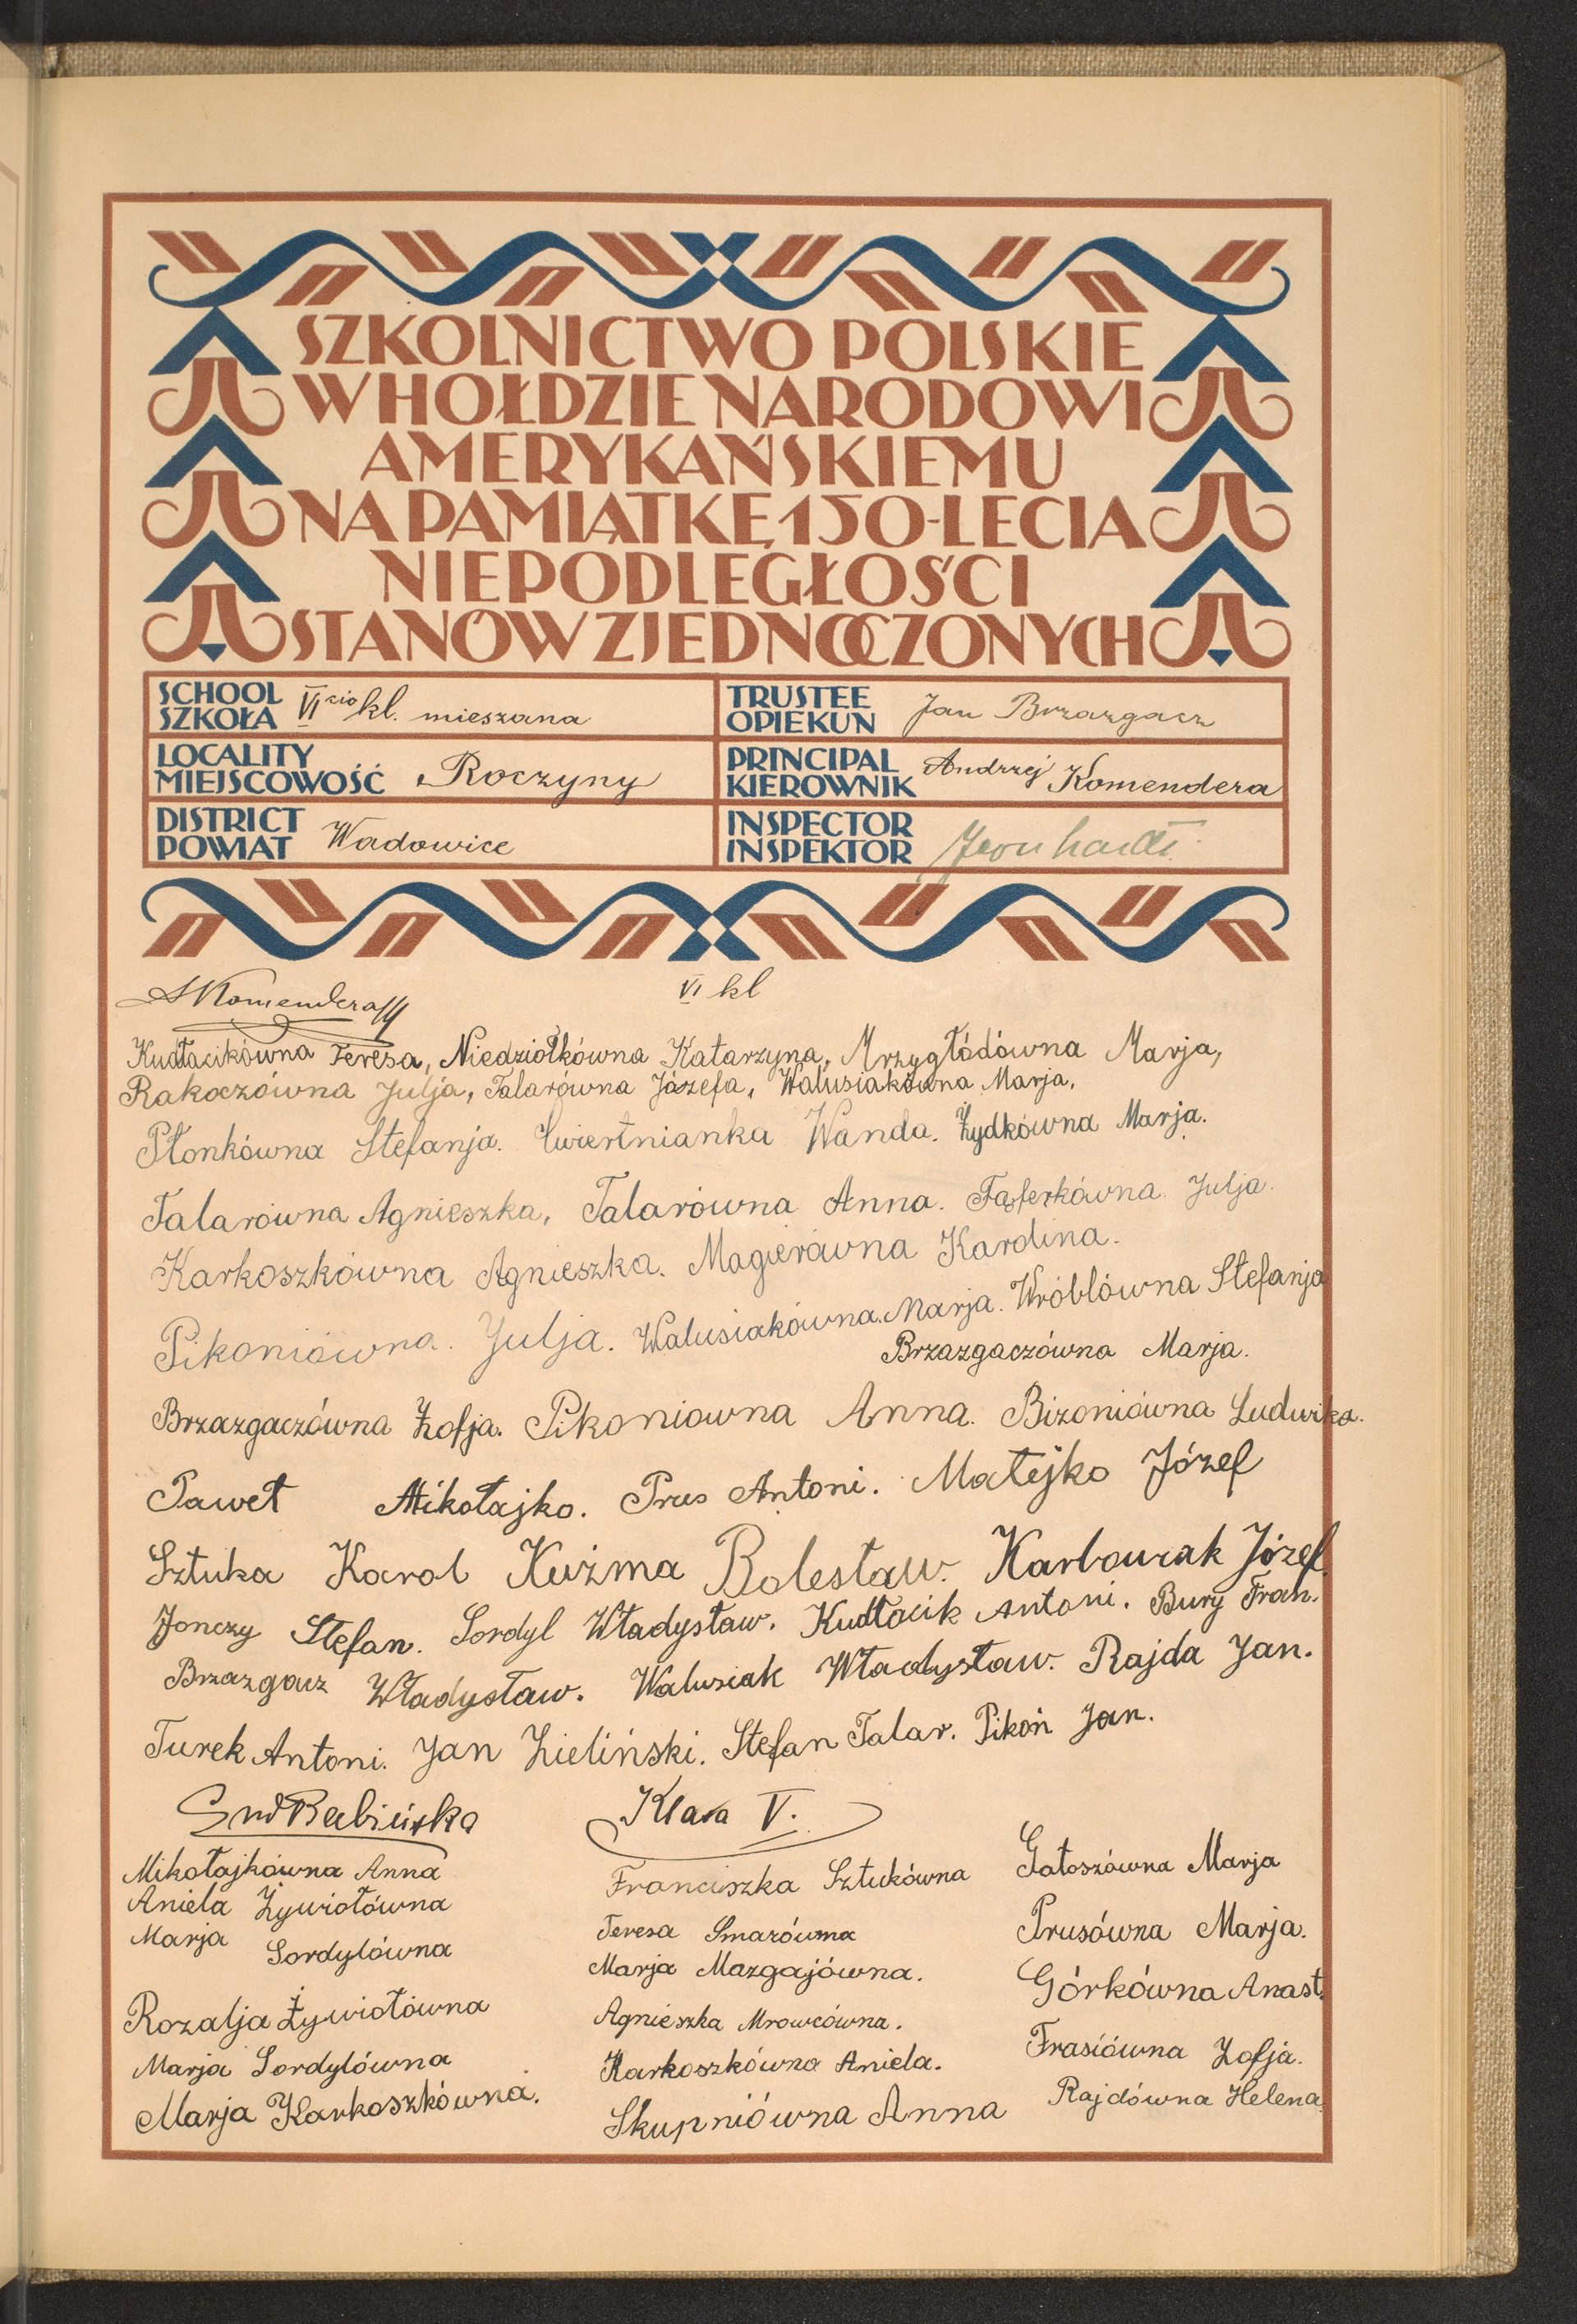 SZKOLNICTWO POLSKIE
W HOŁDZIE NARODOWI
AMERYKAŃSKIEMU
NA PAMIĄTKĘ 150-LECIA
NIEPODLEGŁOŚCI
STANÓW ZJEDNOCZONYCH
SCHOOL
SZKOŁA VIcio kl. mieszana
TRUSTEE
OPIEKUN Jan Brzazgacz
LOCALITY
MIEJSCOWOŚĆ Roczyny
PRINCIPAL
KIEROWNIK Andrzej Komendera
DISTRICT
POWIAT Wadowice
INSPECTOR
INSPEKTOR
AKomendera
VI kl
Kudłacikówna Teresa, Niedziołkówna Katarzyna, Mrzygłódówna Marja,
Rakoczówna Julja, Talarówna Józefa, Walusiakówna Marja,
Płonkówna Stefanja. Ćwiertnianka Wanda. Żydkówna Marja.
Talarówna Agnieszka, Talarówna Anna. Fąferkówna Julja.
Karkoszkówna Agnieszka. Magierówna Karolina.
Pikoniówna. Julja. Walusiakówna. Marja. Wróblówna Stefanja
Brzazgaczówna Marja.
Brzazgaczówna Zofja. Pikoniowna Anna. Bizoniówna Ludwika.
Paweł Mikołajko. Prus Antoni. Matejko Józef
Sztuka Karol Kuźma Bolesław. Karbowiak Józef
Jonczy Stefan. Sordyl Władysław. Kudłacik Antoni. Bury Fran.
Brzazgacz Władysław. Walusiak Władysław. Rajda Jan.
Turek Antoni. Jan Zieliński. Stefan Talar. Pikoń Jan.
Babińska
Klasa V.
Mikołajkówna Anna
Aniela Żywiołówna
Marja Sordylówna
Rozalja Żywiołówna
Marja Sordylówna
Marja Karkoszkówna.
Franciszka Sztukówna
Teresa Smazówna
Marja Mazgajówna.
Agnieszka Mrowcówna.
Karkoszkówna Aniela.
Skupniówna Anna
Gałoszówna Marja
Prusówna Marja.
Górkówna Anast.
Frasiówna Zofja.
Rajdówna Helena